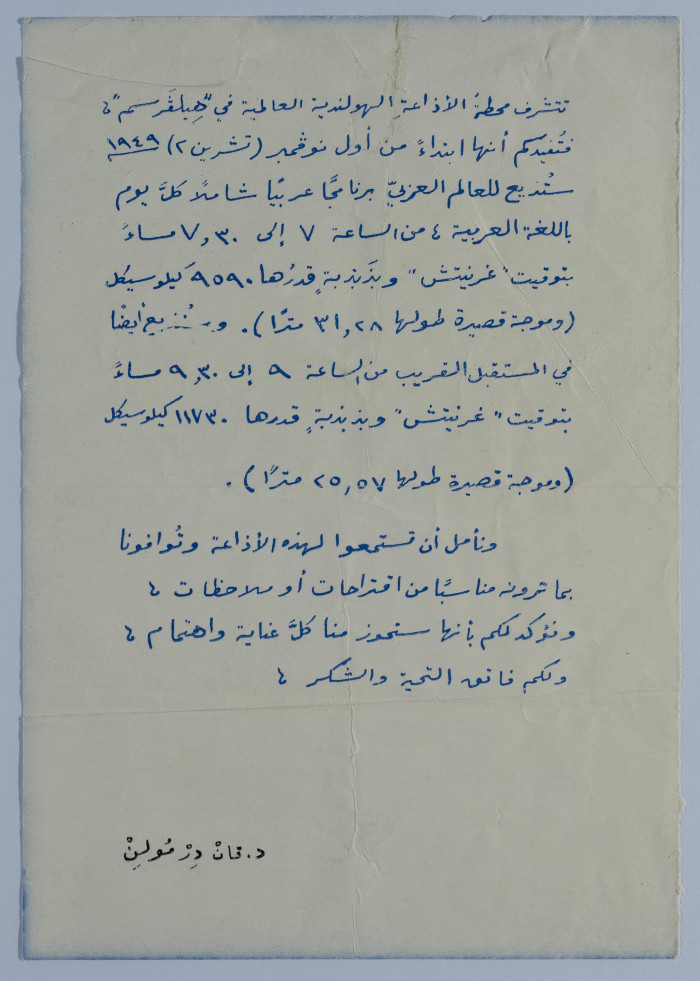 تتشرف محطةُ الأذاعةِ الهولندية العالمية في "هِيلڤَرسم"،
فتُفيدكم أنها ابتداءً من أول نوڤمبر (تشرين ٢) ١٩٤٩
ستُذيع للعالم العربيّ برنامجًا عربيًا شاملًا كلَّ يوم
باللغة العربية، من الساعة ٧ إلى ٧,٣٠ مساءً
بتوقيت "غرنيتش" وبذَبذبةٍ قدرُها ٩٥٩٠ كيلوسيكل
(وموجة قصيرة طولها ٣١,٢٨ مترًا). وسنُذيع أيضًا
في المستقبل القريب من الساعة ٩ إلى ٩,٣٠ مساءً
بتوقيت "غرنيتش" وبذبذبةٍ قدرها ١١٧٣٠ كيلوسيكل
(وموجة قصيرة طولها ٢٥,٥٧ مترًا).
ونأمل أن تستمعوا لهذه الأذاعة وتُوافونا
بما ترونه مناسبًا من اقتراحات أو ملاحظات،
ونؤكد لكم بأنها ستحوز منا كلَّ عناية واهتمام،
ولكم فائق التحية والشكر،
د. ڤانْ دِرْ مُولِنْ